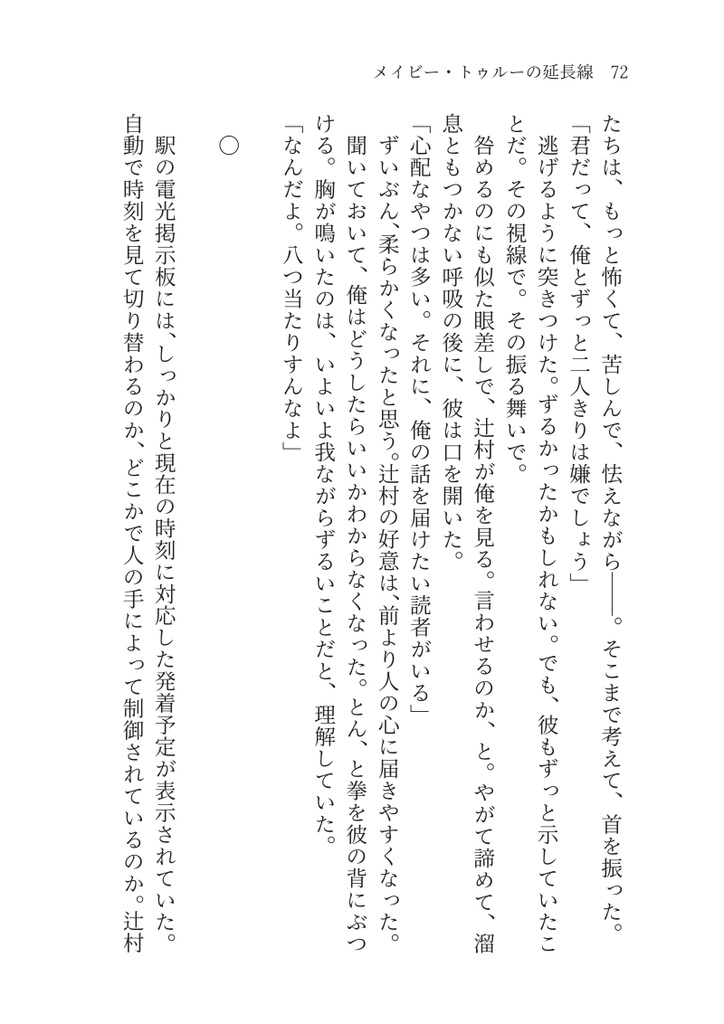 メイビー・トゥルーの延長線 72
たちは、もっと怖くて、苦しんで、怯えながら――。そこまで考えて、首を振った。
「君だって、俺とずっと二人きりは嫌でしょう」
逃げるように突きつけた。ずるかったかもしれない。でも、彼もずっと示していたこ
とだ。その視線で。その振る舞いで。
咎めるのにも似た眼差しで、辻村が俺を見る。言わせるのか、と。やがて諦めて、溜
息ともつかない呼吸の後に、彼は口を開いた。
「心配なやつは多い。それに、俺の話を届けたい読者がいる」
ずいぶん、柔らかくなったと思う。辻村の好意は、前より人の心に届きやすくなった。
聞いておいて、俺はどうしたらいいかわからなくなった。とん、と拳を彼の背にぶつ
ける。胸が鳴いたのは、いよいよ我ながらずるいことだと、理解していた。
「なんだよ。八つ当たりすんなよ」
〇
駅の電光掲示板には、しっかりと現在の時刻に対応した発着予定が表示されていた。
自動で時刻を見て切り替わるのか、どこかで人の手によって制御されているのか。辻村